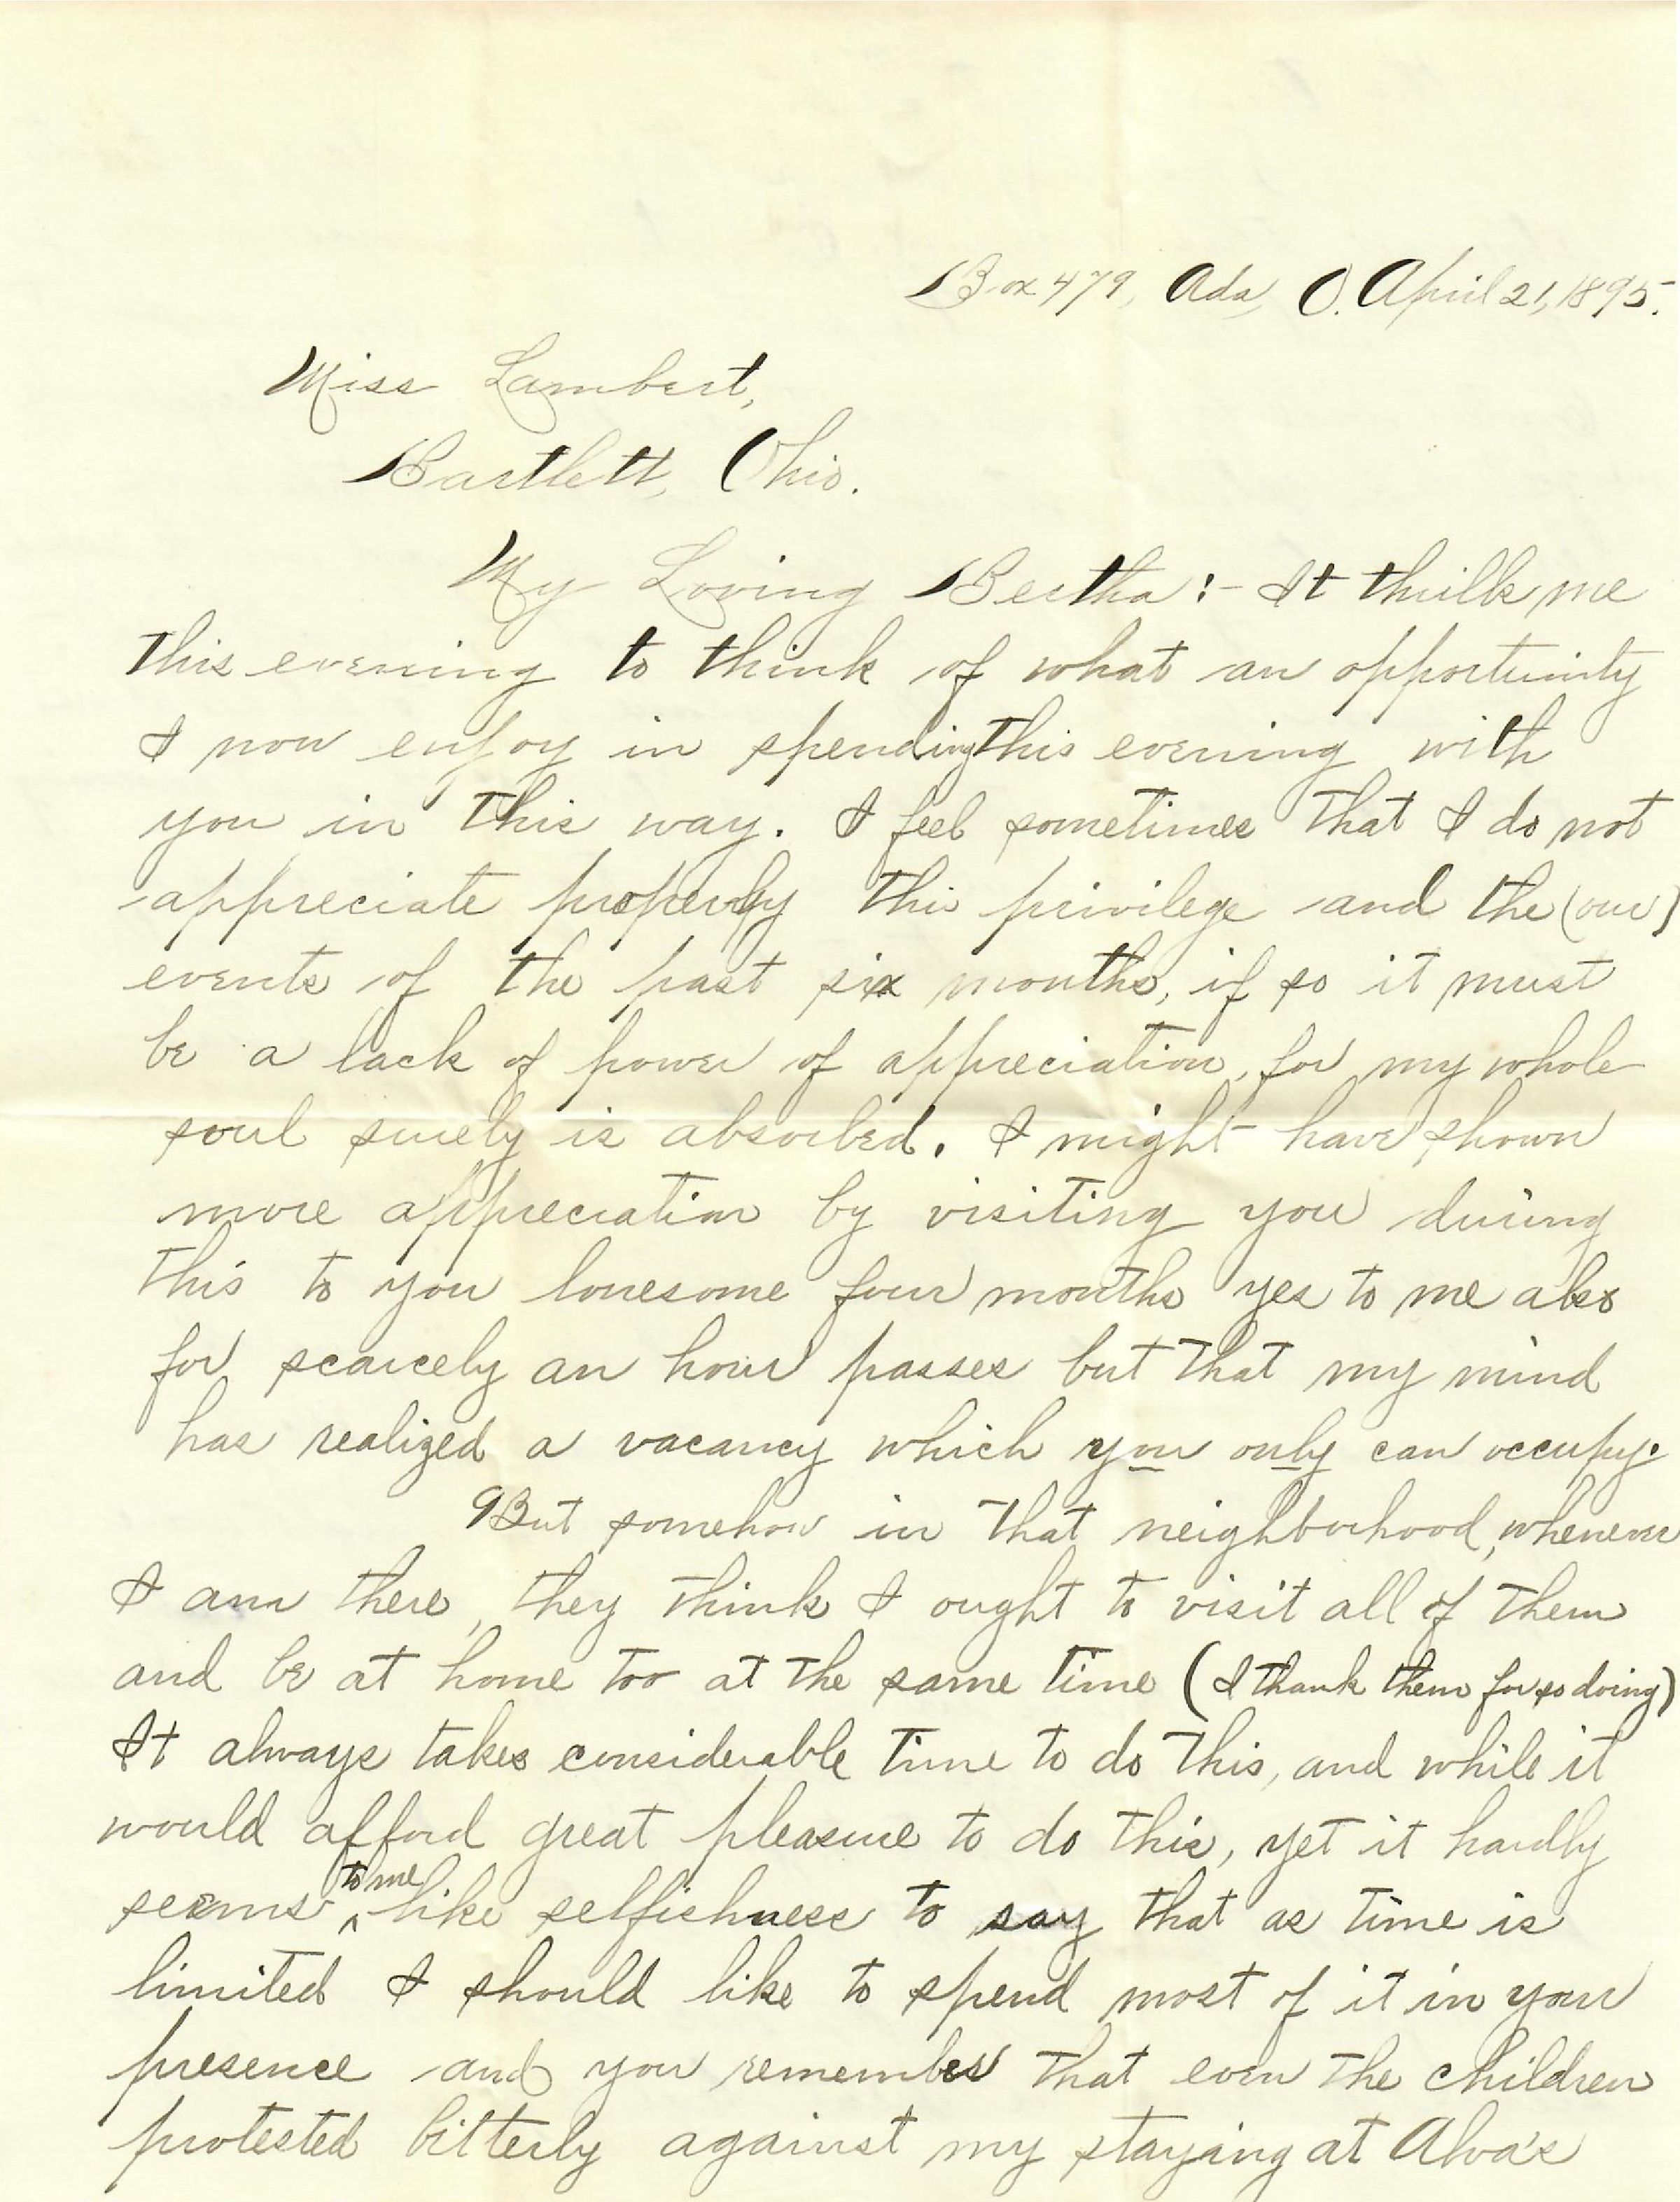 Box 479, Ada, O. April 21, 1895.
Miss Lambert,
Bartlett, Ohio.
My Loving Bertha:- It thrills me
this evening to think of what an opportunity
I now enjoy in spending this evening with
you in this way. I feel sometimes that I do not
appreciate properly this privilege and the (our)
events of the past six months, if so it must
be a lack of power of appreciation, for my whole
soul surely is absorbed. I might have shown
more appreciation by visiting you during
this to you lonesome four months yes to me also
for scarcely an hour passes but that my mind
has realized a vacancy which you only can occupy.
But somehow in that neighborhood, whenever
I am there, they think I ought to visit all of them
and be at home too at the same time (I thank them for so doing)
It always takes considerable time to do this, and while it
would afford great pleasure to do this, yet it hardly
seems to me like selfishness to say that as time is
limited I should like to spend most of it in your
presence and you remember that even the children
protested bitterly against my staying at Alva's